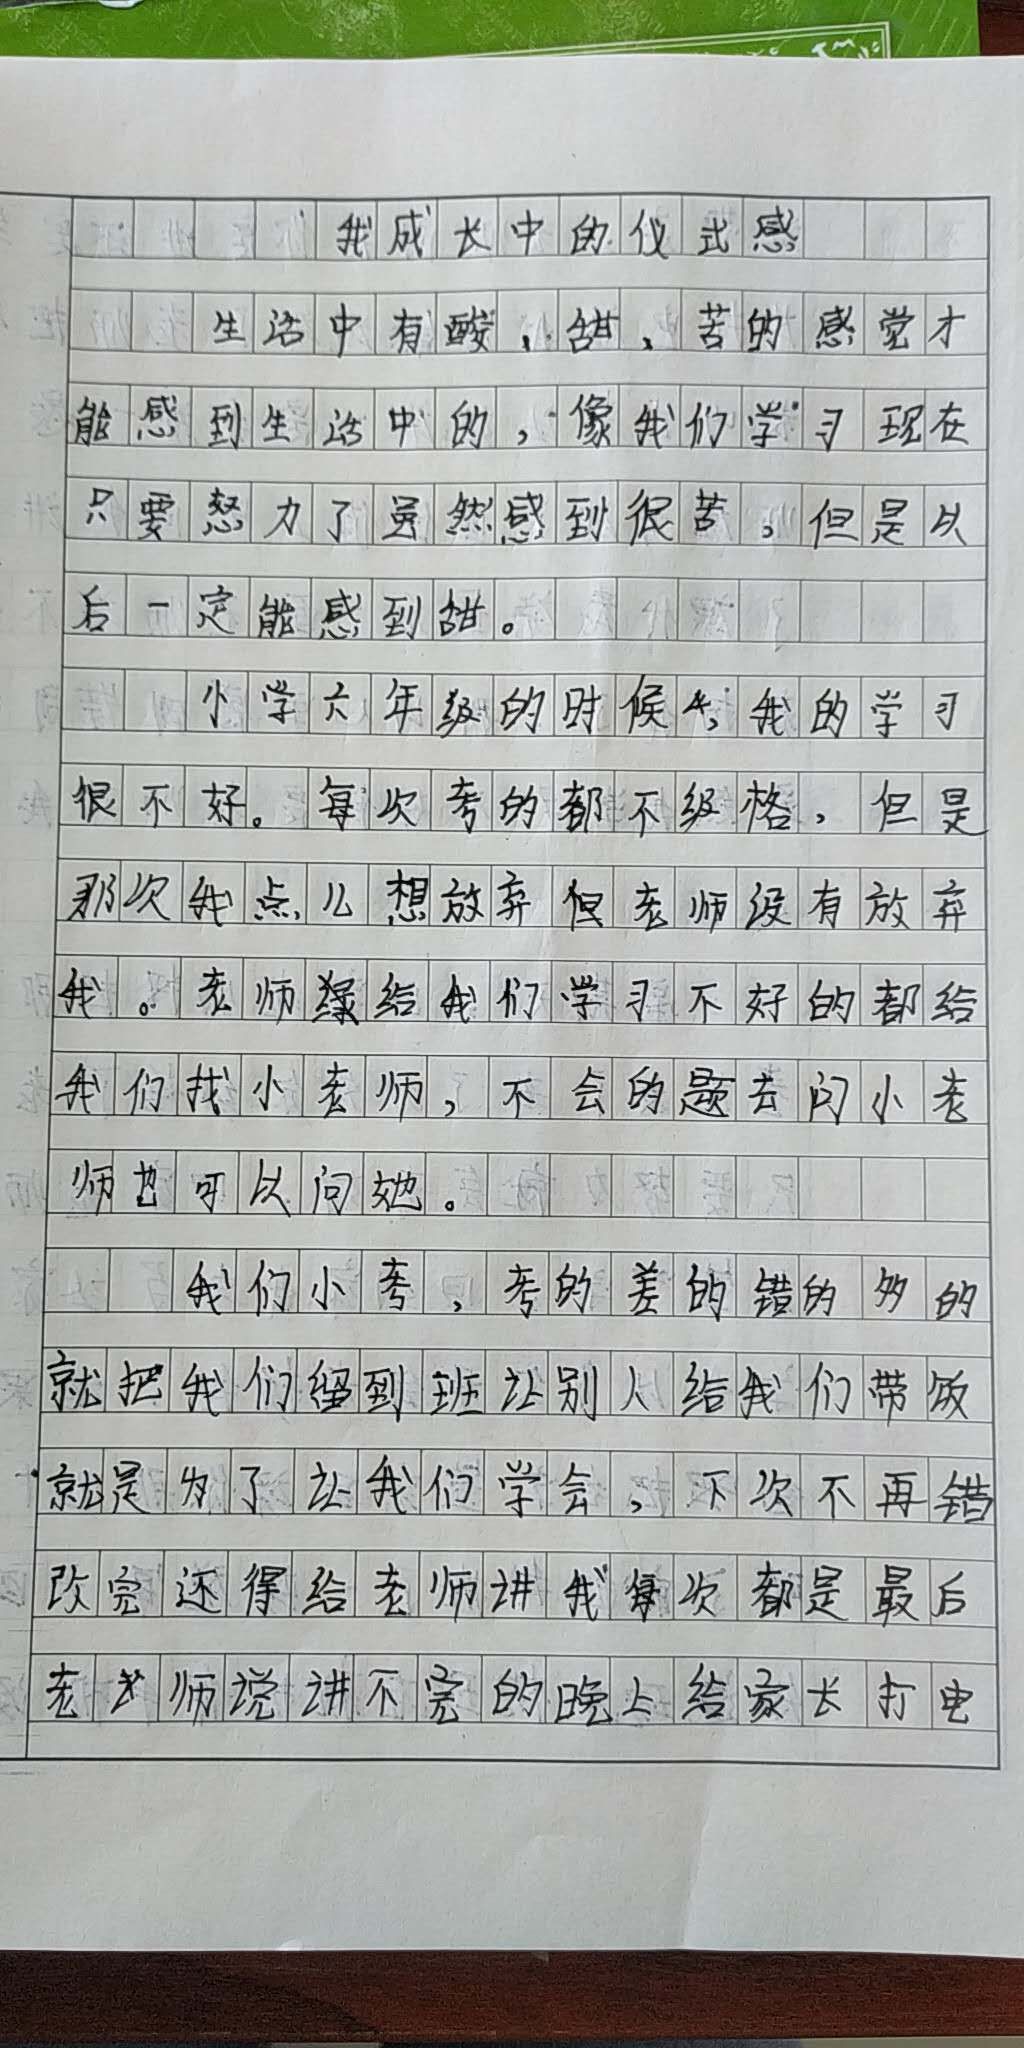 我成长中的仪式感
生活中有酸,甜,苦的感觉才
能感到生活中的,像我们学习现在
只要努力了虽然感到很苦,但是以
后一定能感到甜。
小学六年级的时候,我的学习
很不好。每次考的都不级格,但是
那次我点儿想放弃但老师没有放弃
我。老师给我们学习不好的都给
我们找小老师,不会的题去问小老
师也可以问她。
我们小考,考的差的错的多的
就把我们留到班让别人给我们带饭
就是为了让我们学会,下次不再错
改完还得给老师讲我每次都是最后
老师说讲不完的晚上给家长打电